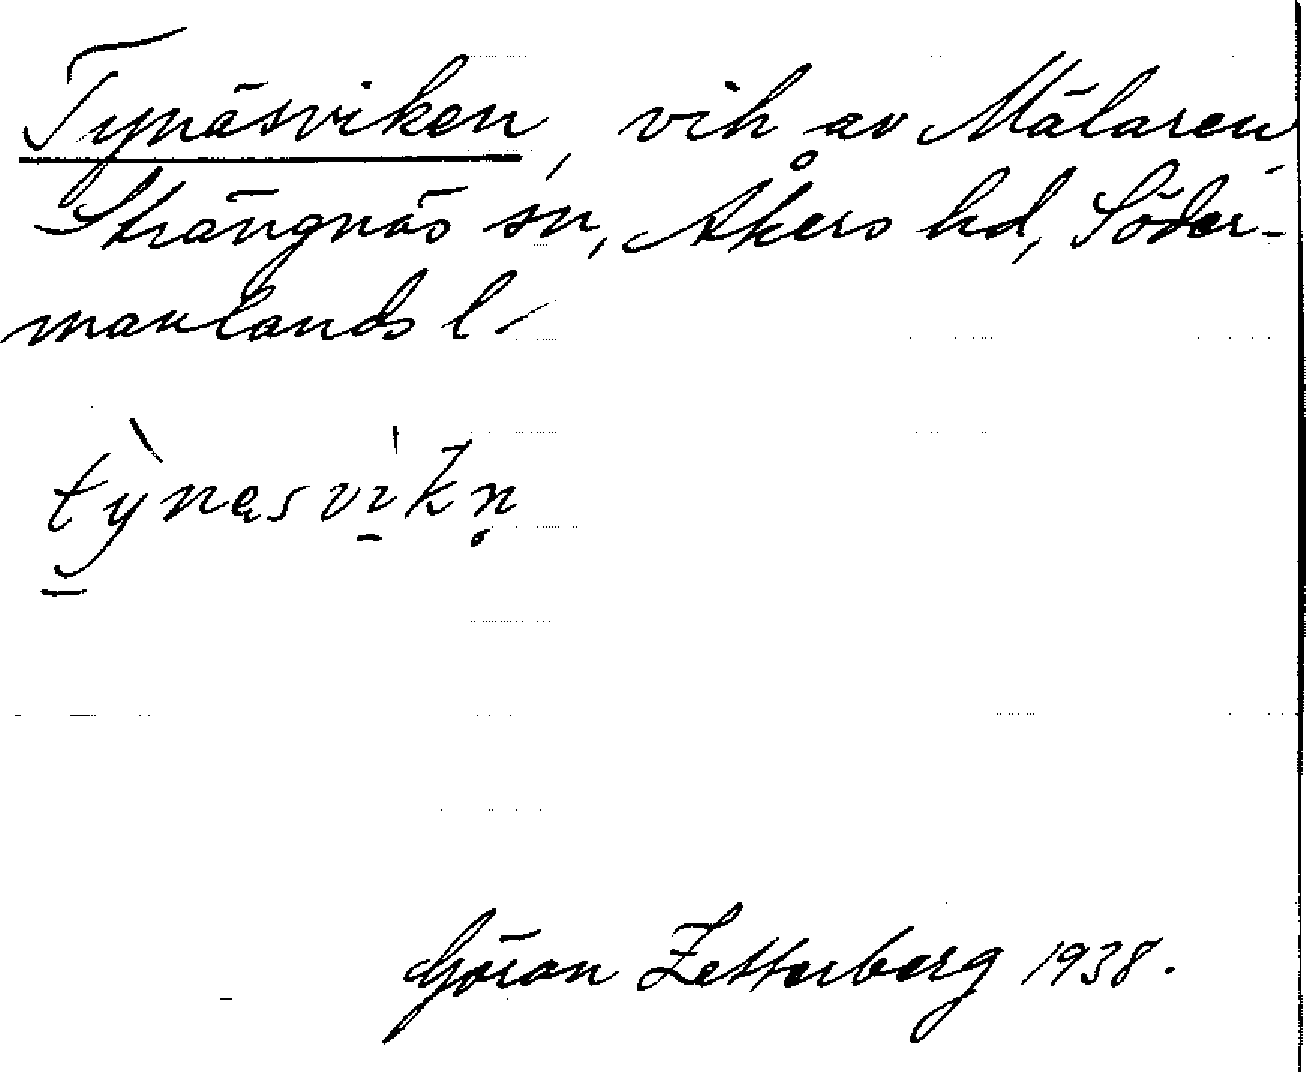 Tynäsviken, vik av Mälaren,
Strängnäs sn, Åkers hd, Söder-
manlands l.
tỳnęsvi̠kn̥
Göran Zetterberg 1938.